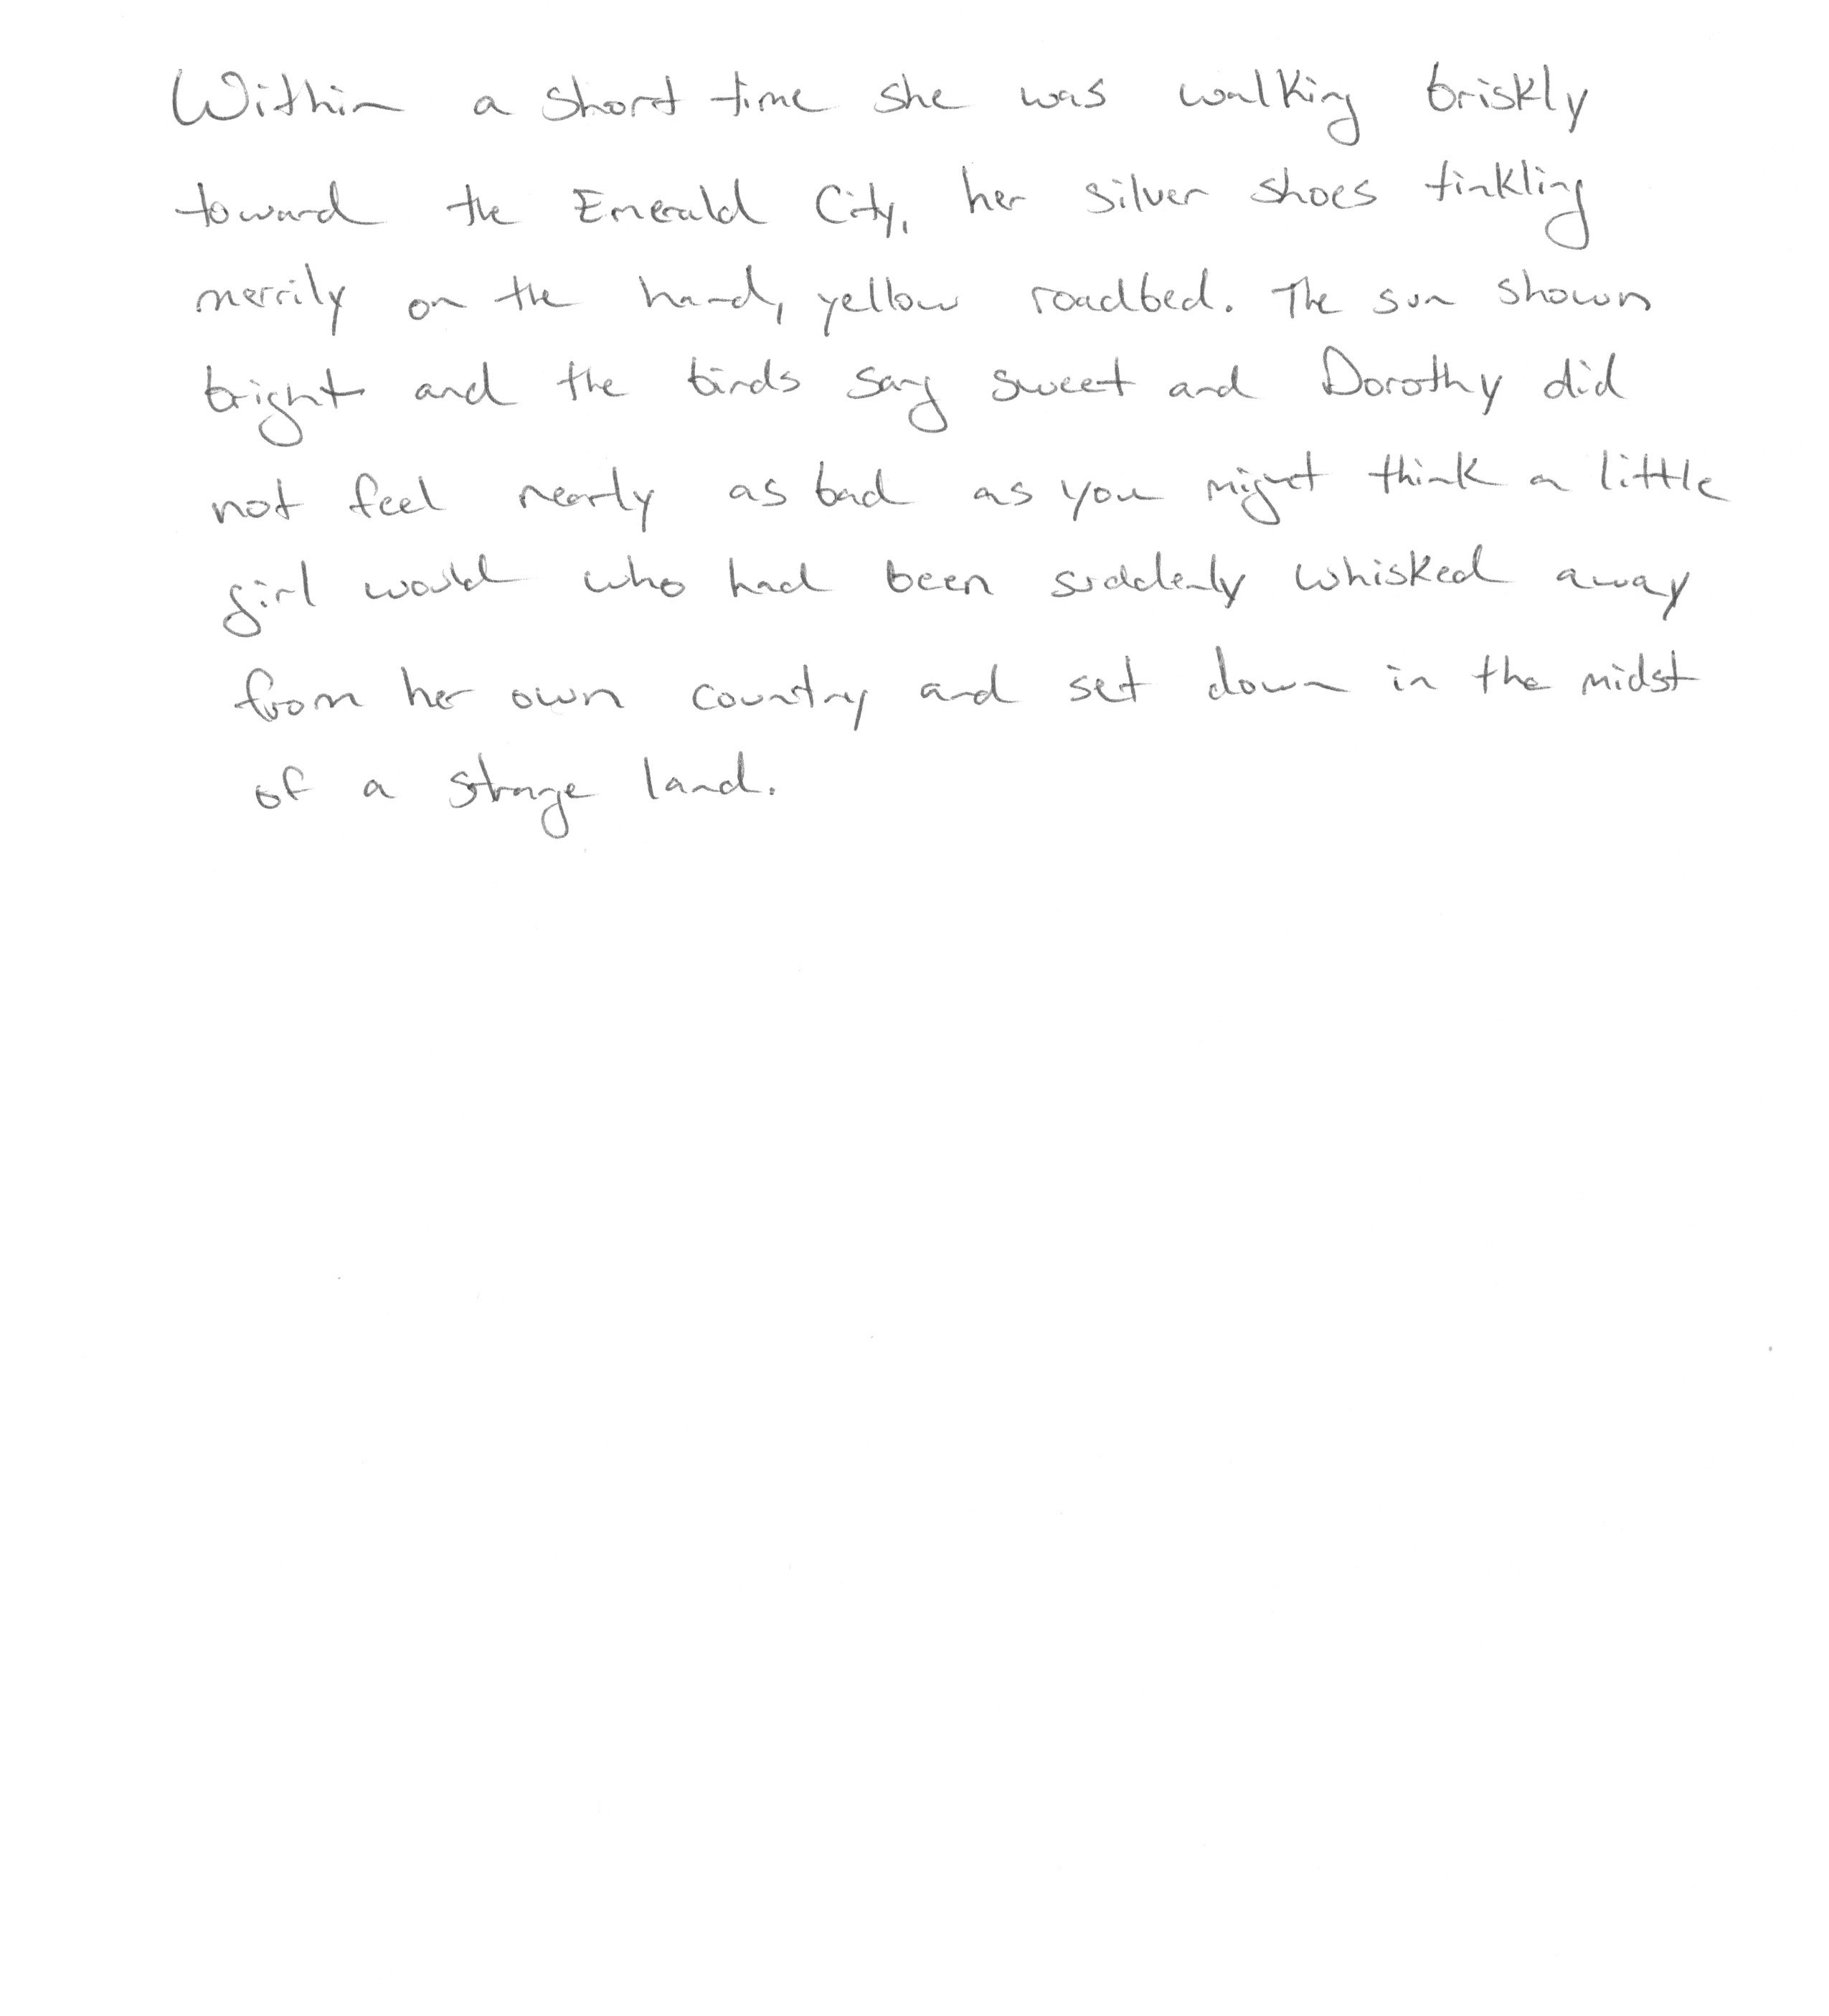 Within a short time she was walking briskly
toward the Emerald City, her silver shoes tinkling
merrily on the hard, yellow roadbed. The sun shown
bright and the birds sang sweet and Dorothy did
not feel nearly as bad as you might think a little
girl would who had been suddenly whisked away
from her own country and set down in the midst
of a strange land.